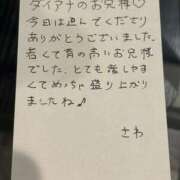 ダイアナのお兄様♡
今日は遊んでくださり
ありがとうございました。
若くて背の高いお兄様
でした。とても優しやすく
てめっちゃ盛り上がり
ましたね♪
さわ